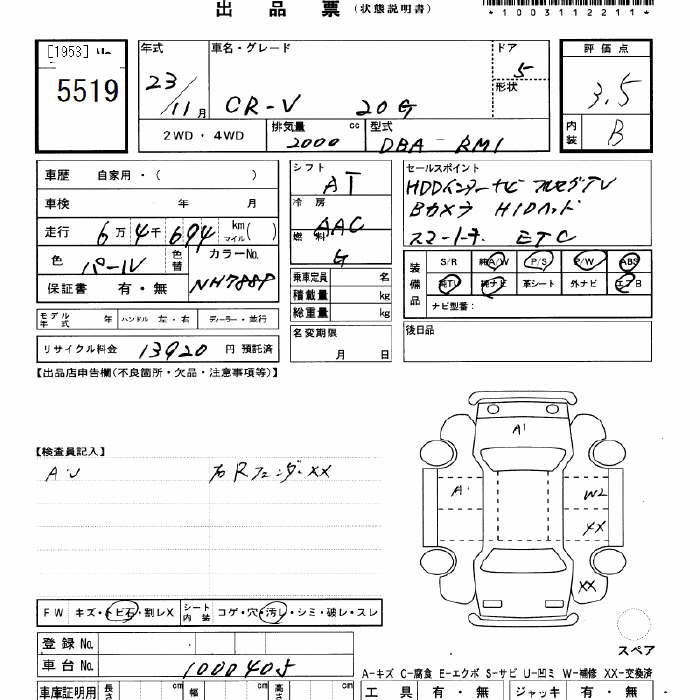 出品票(状態説明書)
*1003112211*
[1953]
5519
年式 23/11月
車名・グレード CR-V 20G
ドア 5
形状
評価点 3.5
内装 B
2WD・4WD
排気量 2000 cc
型式 DBA-RM1
車歴 自家用・( )
シフト AT
セールスポイント
HDDインターナビ フルセグTV
車検 年 月
冷房 AAC
Bカメラ HIDヘッド
走行 6万4千694 km マイル( )
燃料 G
スマートキー ETC
色 パール
色替
カラーNo. NH788P
乗車定員 名
装備品 S/R 純A/W P/S P/W ABS
保証書 有・無
積載量 kg
純TV 純ナビ 革シート 外ナビ エアB
総重量 kg
ナビ型番:
モデル年式 年 ハンドル 左・右 ディーラー・並行
名変期限 月 日
後日品
リサイクル料金 13920 円 預託済
【出品店申告欄(不良箇所・欠品・注意事項等)】
【検査員記入】
AU 右Rフェンダー××
A1
A1 W2
XX
XX
FW キズ・トビ石・割レX
シート内装 コゲ・穴・汚レ・シミ・破レ・スレ
登録No.
スペア
車台No. 1000405
A-キズ C-腐食 E-エクボ S-サビ U-凹ミ W-補修 XX-交換済
車庫証明用 長さ cm 幅 cm 高さ cm
工具 有・無 ジャッキ 有・無